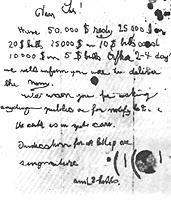 Dear Sir!
Have 50,000 $ redy 25000 $ in
20 $ bills 15000 $ in 10 $ bills and
10000 $ in 5 $ bills After 2-4 days
we will inform you were to deliver
the mony.
We warn you for making
anyding public or for notify the
the child is in gut care.
Indication for all letters are
singnature
and 3 holds.